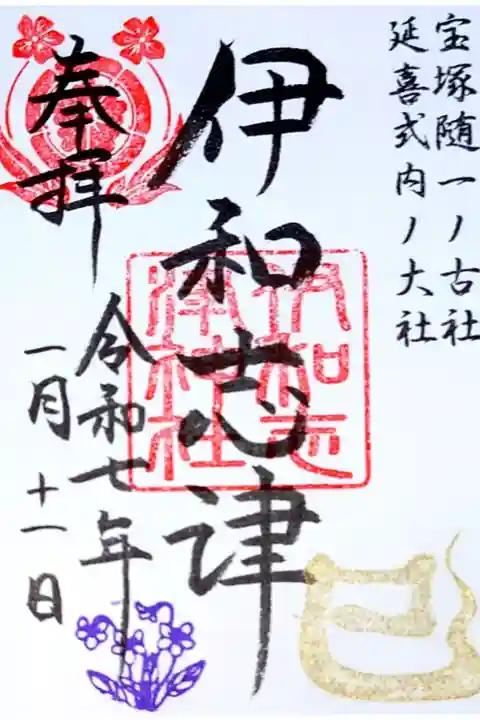 宝塚随一ノ古社
延喜式内ノ大社
伊和志津
伊和志津神社
奉拝
令和七年
一月十一日
巳